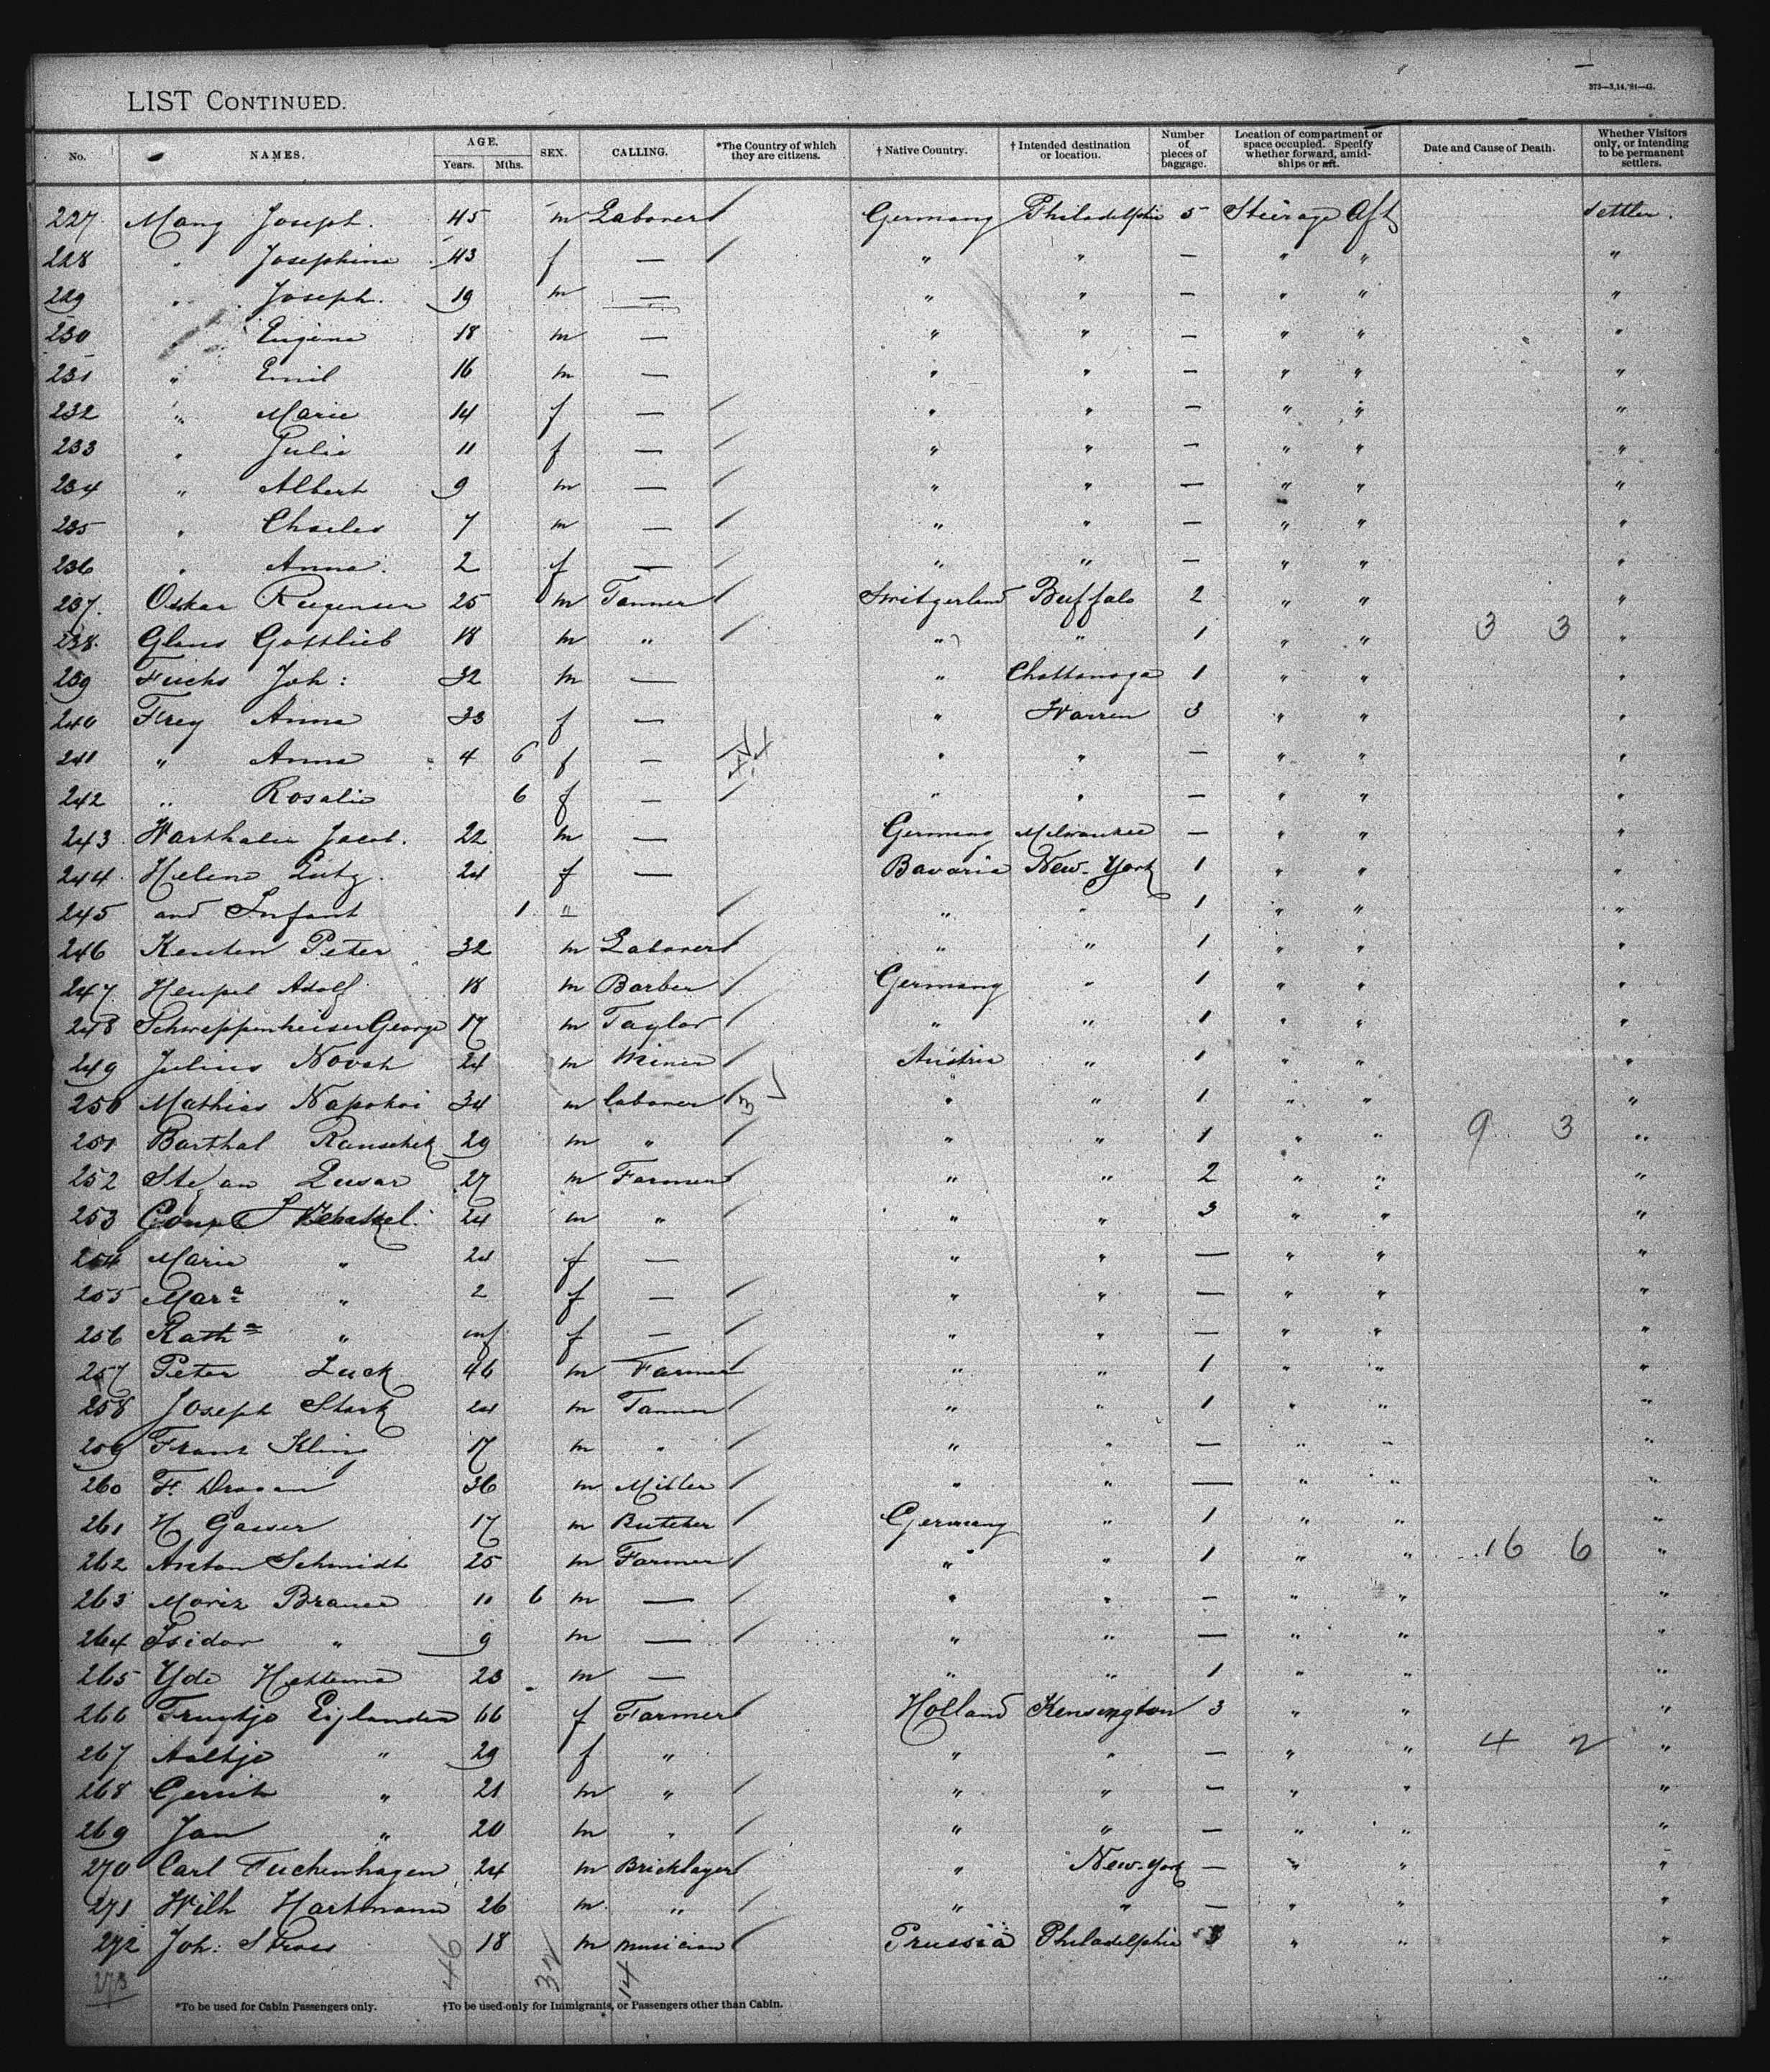 LIST CONTINUED.
373—3,14,'91—G.
No. NAMES. AGE. Years. Mths. SEX. CALLING. *The Country of which they are citizens. † Native Country. † Intended destination or location. Number of pieces of baggage. Location of compartment or space occupied. Specify whether forward, amidships or aft. Date and Cause of Death. Whether Visitors only, or intending to be permanent settlers.
227 Mang Joseph. 45 m Laborer Germany Philadelphia 5 Steerage Aft Settler.
228 " Josephine 43 f — " " — " " "
229 " Joseph. 19 m — " " — " " "
230 " Eugene 18 m — " " — " " "
231 " Emil 16 m — " " — " " "
232 " Marie 14 f — " " — " " "
233 " Julie 11 f — " " — " " "
234 " Albert 9 m — " " — " " "
235 " Charles 7 m — " " — " " "
236 " Anna. 2 f — " " — " " "
237. Oskar 25 m Tanner Switzerland Buffalo 2 " " "
238. Glaus Gottlieb 18 m " " " 1 " " 3 3 "
239 Fuchs Joh: 32 m — " Chattanoga 1 " " "
240 Frey Anna 33 f — " Warren 3 " " "
241 " Anna 4 6 f — " " — " " "
242 " Rosalie 6 f — " " — " " "
243 Jacob. 22 m — Germany Milwaukee — " " "
244 Helene Lutz. 24 f — Bavaria New-York 1 " " "
245 and Infant 1 " " " 1 " " "
246 Peter 32 m Laborer " " 1 " " "
247 Adolf 18 m Barber Germany " 1 " " "
248 Schweppenheiser George 17 m Taylor " " 1 " " "
249 Julius 24 m Miner Austria " 1 " " "
250 Mathias 34 m laborer " " 1 " " "
251 Barthal 29 m " " " 1 " " 9 3 "
252 Stefan 27 m Farmer " " 2 " " "
253 24 m " " " 3 " " "
254 Marie " 24 f — " " — " " "
255 Mara " 2 f — " " — " " "
256 Katha " inf f — " " — " " "
257 Peter Luck 46 m Farmer " " 1 " " "
258 Joseph Stark 24 m Tanner " " 1 " " "
259 Franz Kling 17 m " " " — " " "
260 F. Dragan 36 m Miller " " — " " "
261 H Gaiser 17 m Butcher Germany " 1 " " "
262 Anton Schmidt 25 m Farmer " " 1 " " 16 6 "
263 Moriz 10 6 m — " " — " " "
264 Isidor " 9 m — " " — " " "
265 Yde Hettema 23 m — " " 1 " " "
266 66 f Farmer Holland Kensington 3 " " "
267 Aaltje " 29 f " " " — " " 4 2 "
268 Gerrit " 21 m " " " — " " "
269 Jan " 20 m " " " — " " "
270 Carl Fuchenhagen 24 m Bricklayer " New-York — " " "
271 Wilh Hartmann 26 m " " " — " " "
272 Joh: 18 m musician Prussia Philadelphia 3 " " "
273 46 32 14 "
*To be used for Cabin Passengers only. †To be used only for Immigrants, or Passengers other than Cabin.